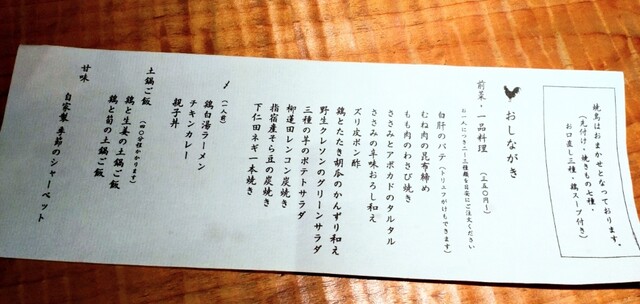 焼鳥はおまかせとなっております。
(先付け・焼きもの七種・
お口直し三種・鶏スープ付き)
おしながき
前菜・一品料理 (五五〇円~)
お一人につき二~三種類を目安にご注文ください
白肝のパテ (トリュフがけもできます)
むね肉の昆布締め
もも肉のわさび焼き
ささみとアボカドのタルタル
ささみの辛味おろし和え
ズリ皮ポン酢
鶏とたたき胡瓜のかんずり和え
野生クレソンのグリーンサラダ
三種の芋のポテトサラダ
柳蓮田レンコン炭焼き
指宿産そら豆の炭焼き
下仁田ネギ一本焼き
〆 (一人前)
鶏白湯ラーメン
チキンカレー
親子丼
土鍋ご飯 (約40分程かかります)
鶏と生姜の土鍋ご飯
鶏と筍の土鍋ご飯
甘味 自家製 季節のシャーベット